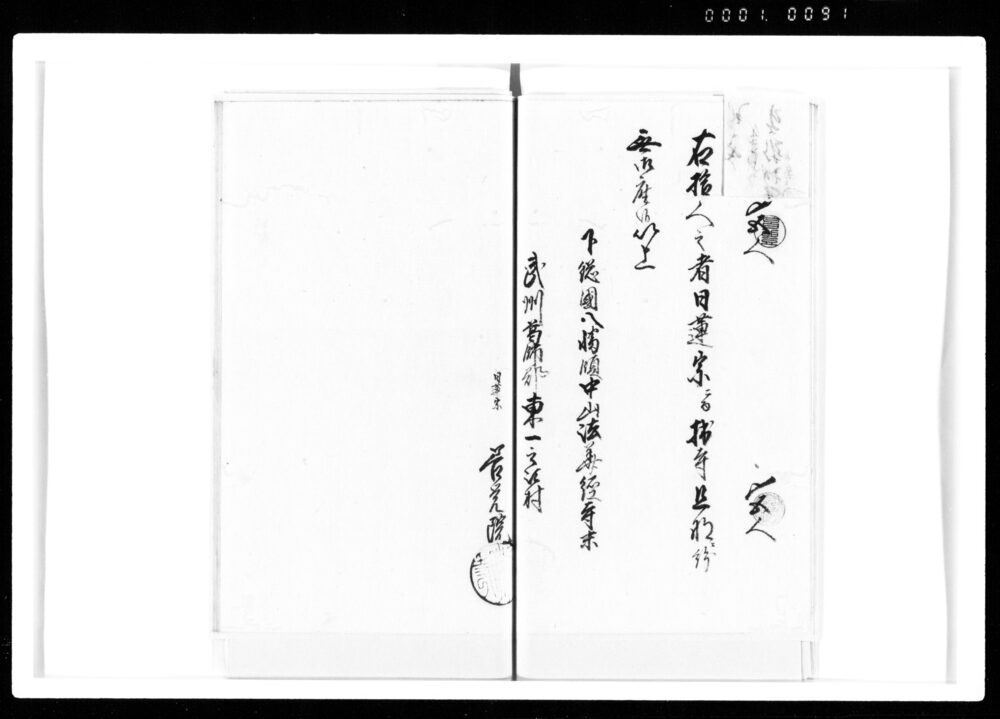 0001. 0091
右拾人之者日蓮宗ニ而拙寺旦那ニ紛
無御座候以上
下総國八幡領中山法華経寺末
武州葛飾郡東一之江村
日蓮宗
覚院